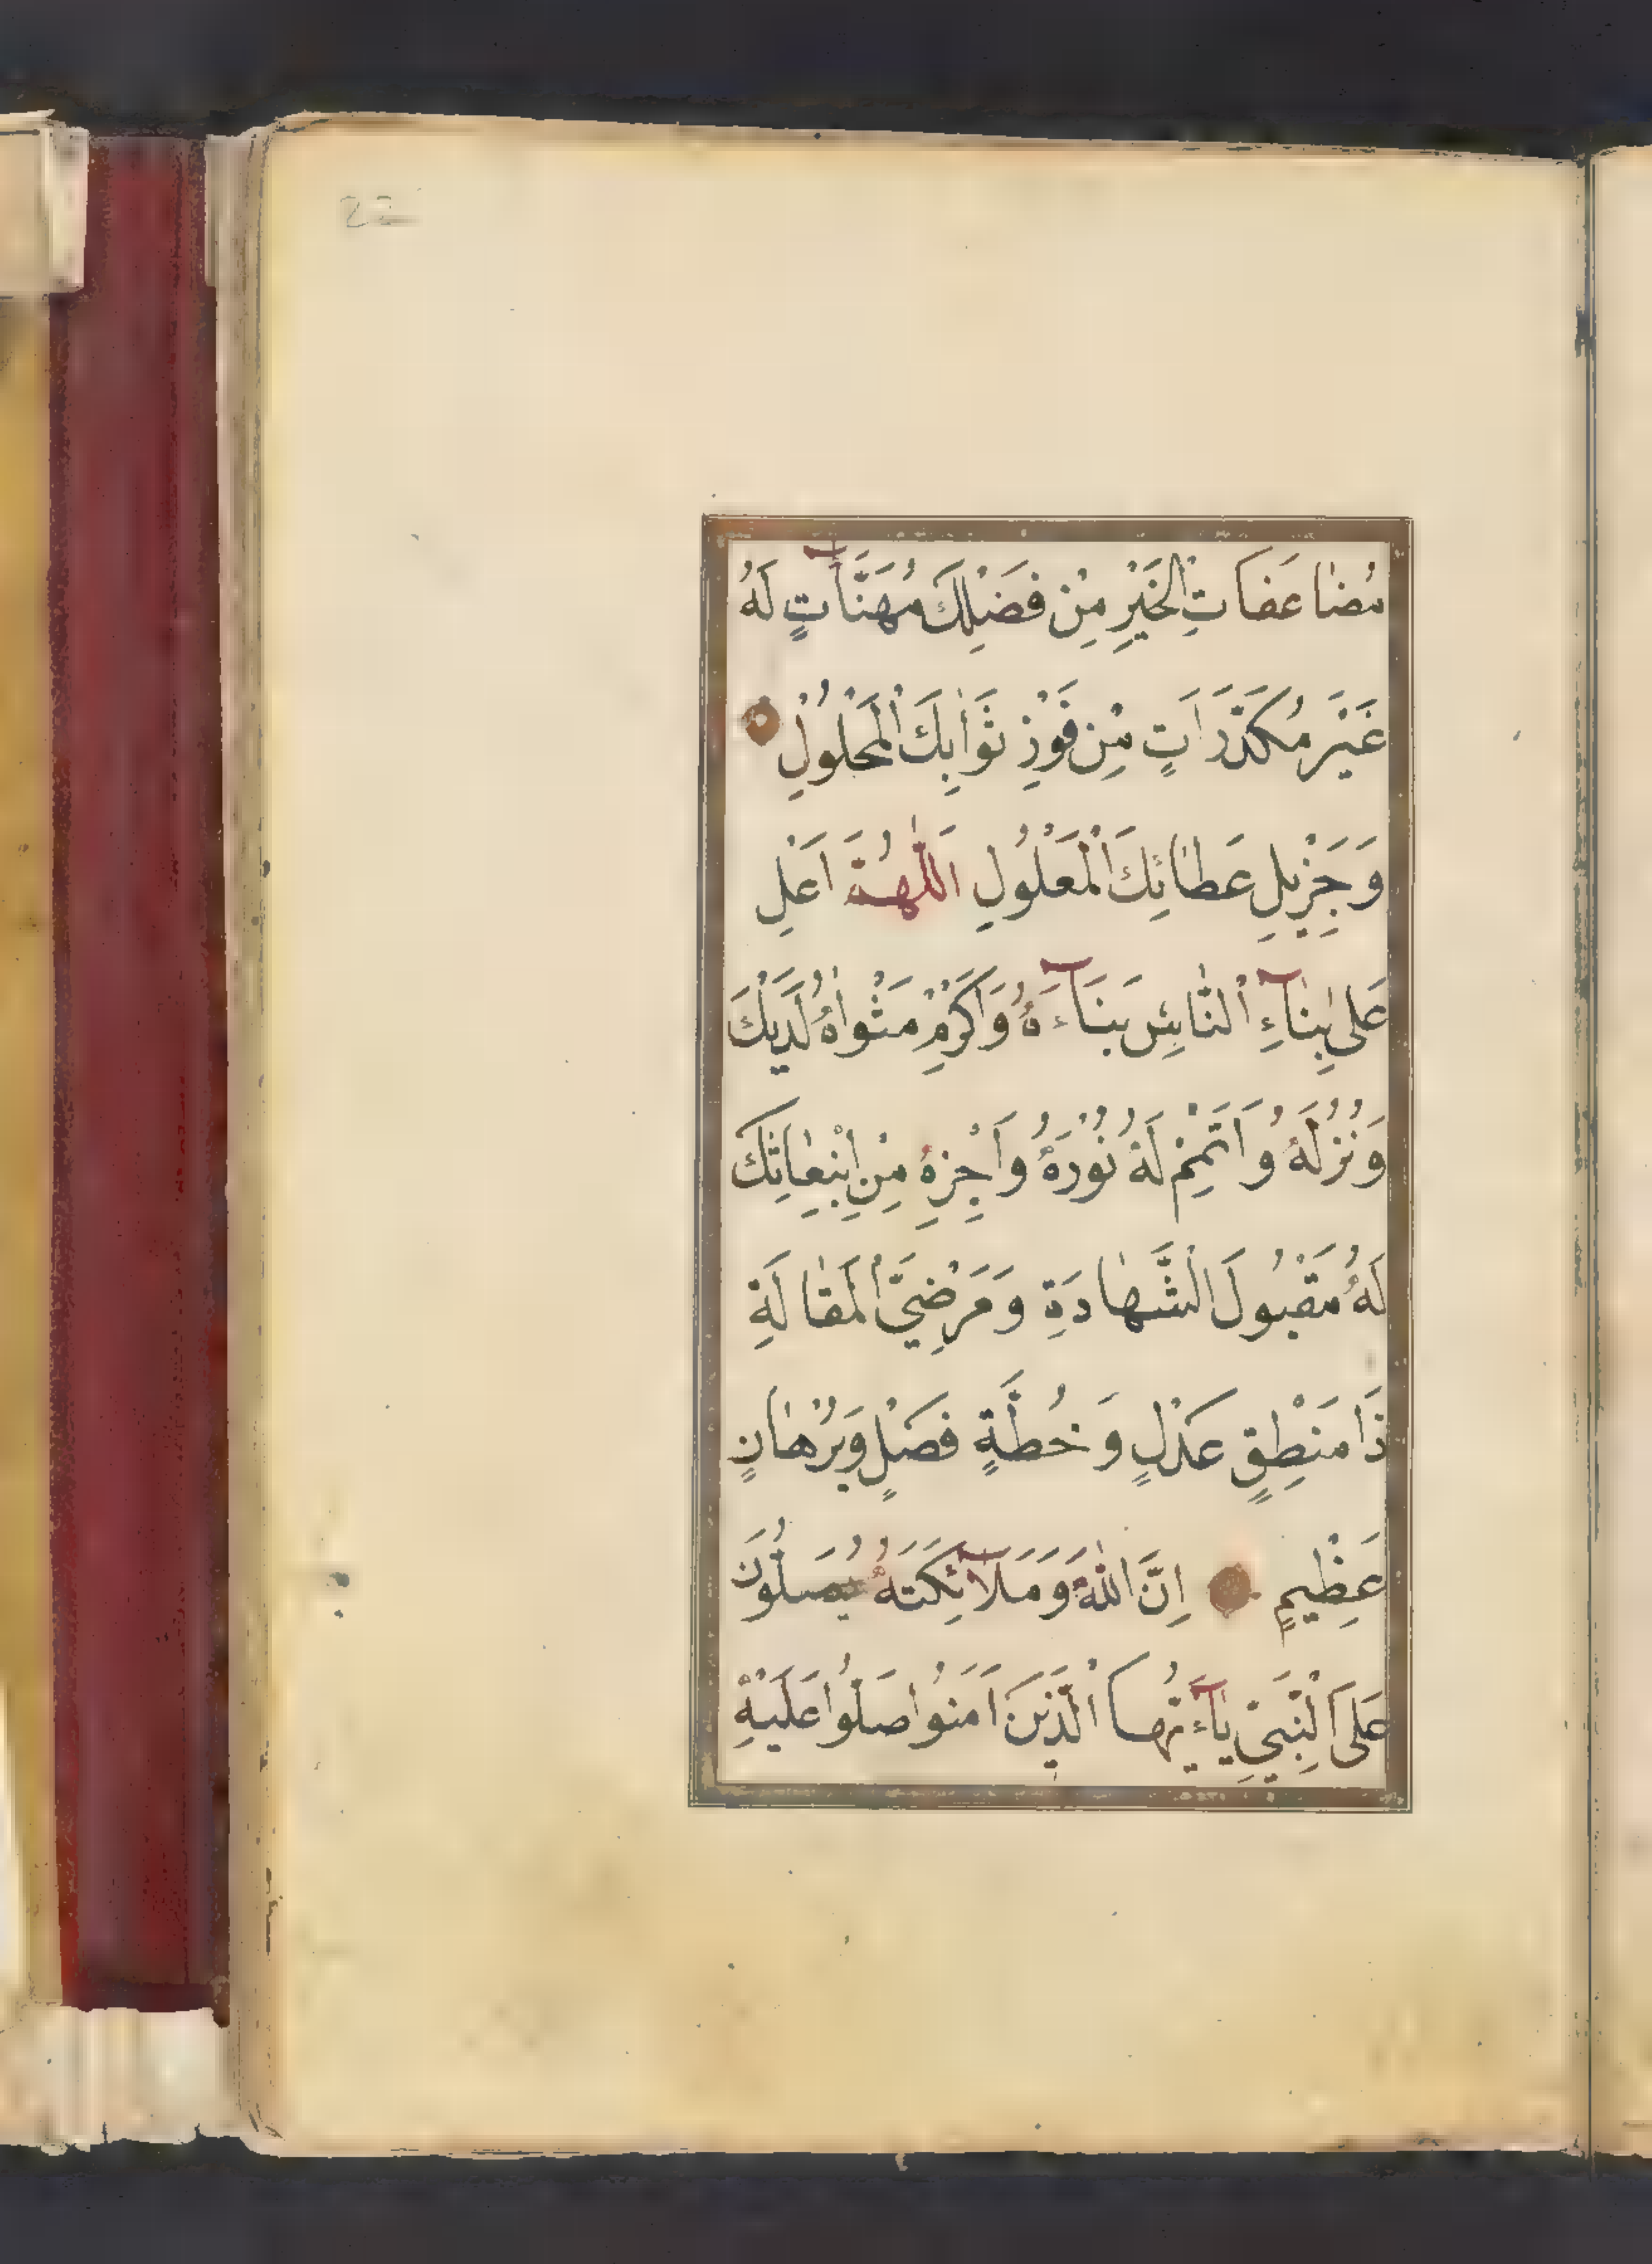 22
مُضَاعَفَاتِ الْخَيْرِ مِنْ فَضْلِكَ مُهَنَّآتٍ لَهُ
غَيْرَ مُكَدَّرَاتٍ مِنْ فَوْزِ ثَوَابِكَ الْمَحْلُولِ
وَجَزِيلِ عَطَائِكَ الْمَعْلُولِ اَللّٰهُمَّ اَعْلِ
عَلٰى بِنَآءِ النَّاسِ بِنَآءَهُ وَاَكْرِمْ مَثْوَاهُ لَدَيْكَ
وَنُزُلَهُ وَاَتْمِمْ لَهُ نُورَهُ وَاَجْزِهِ مِنِ ابْتِعَاثِكَ
لَهُ مَقْبُولَ الشَّهَادَةِ وَمَرْضِيَّ الْمَقَالَةِ
ذَا مَنْطِقٍ عَدْلٍ وَخُطَّةٍ فَصْلٍ وَبُرْهَانٍ
عَظِيمٍ اِنَّ اللّٰهَ وَمَلَآئِكَتَهُ يُصَلُّونَ
عَلَى النَّبِيِّ يَآءَيُّهَا الَّذِينَ اٰمَنُوا صَلُّوا عَلَيْهِ